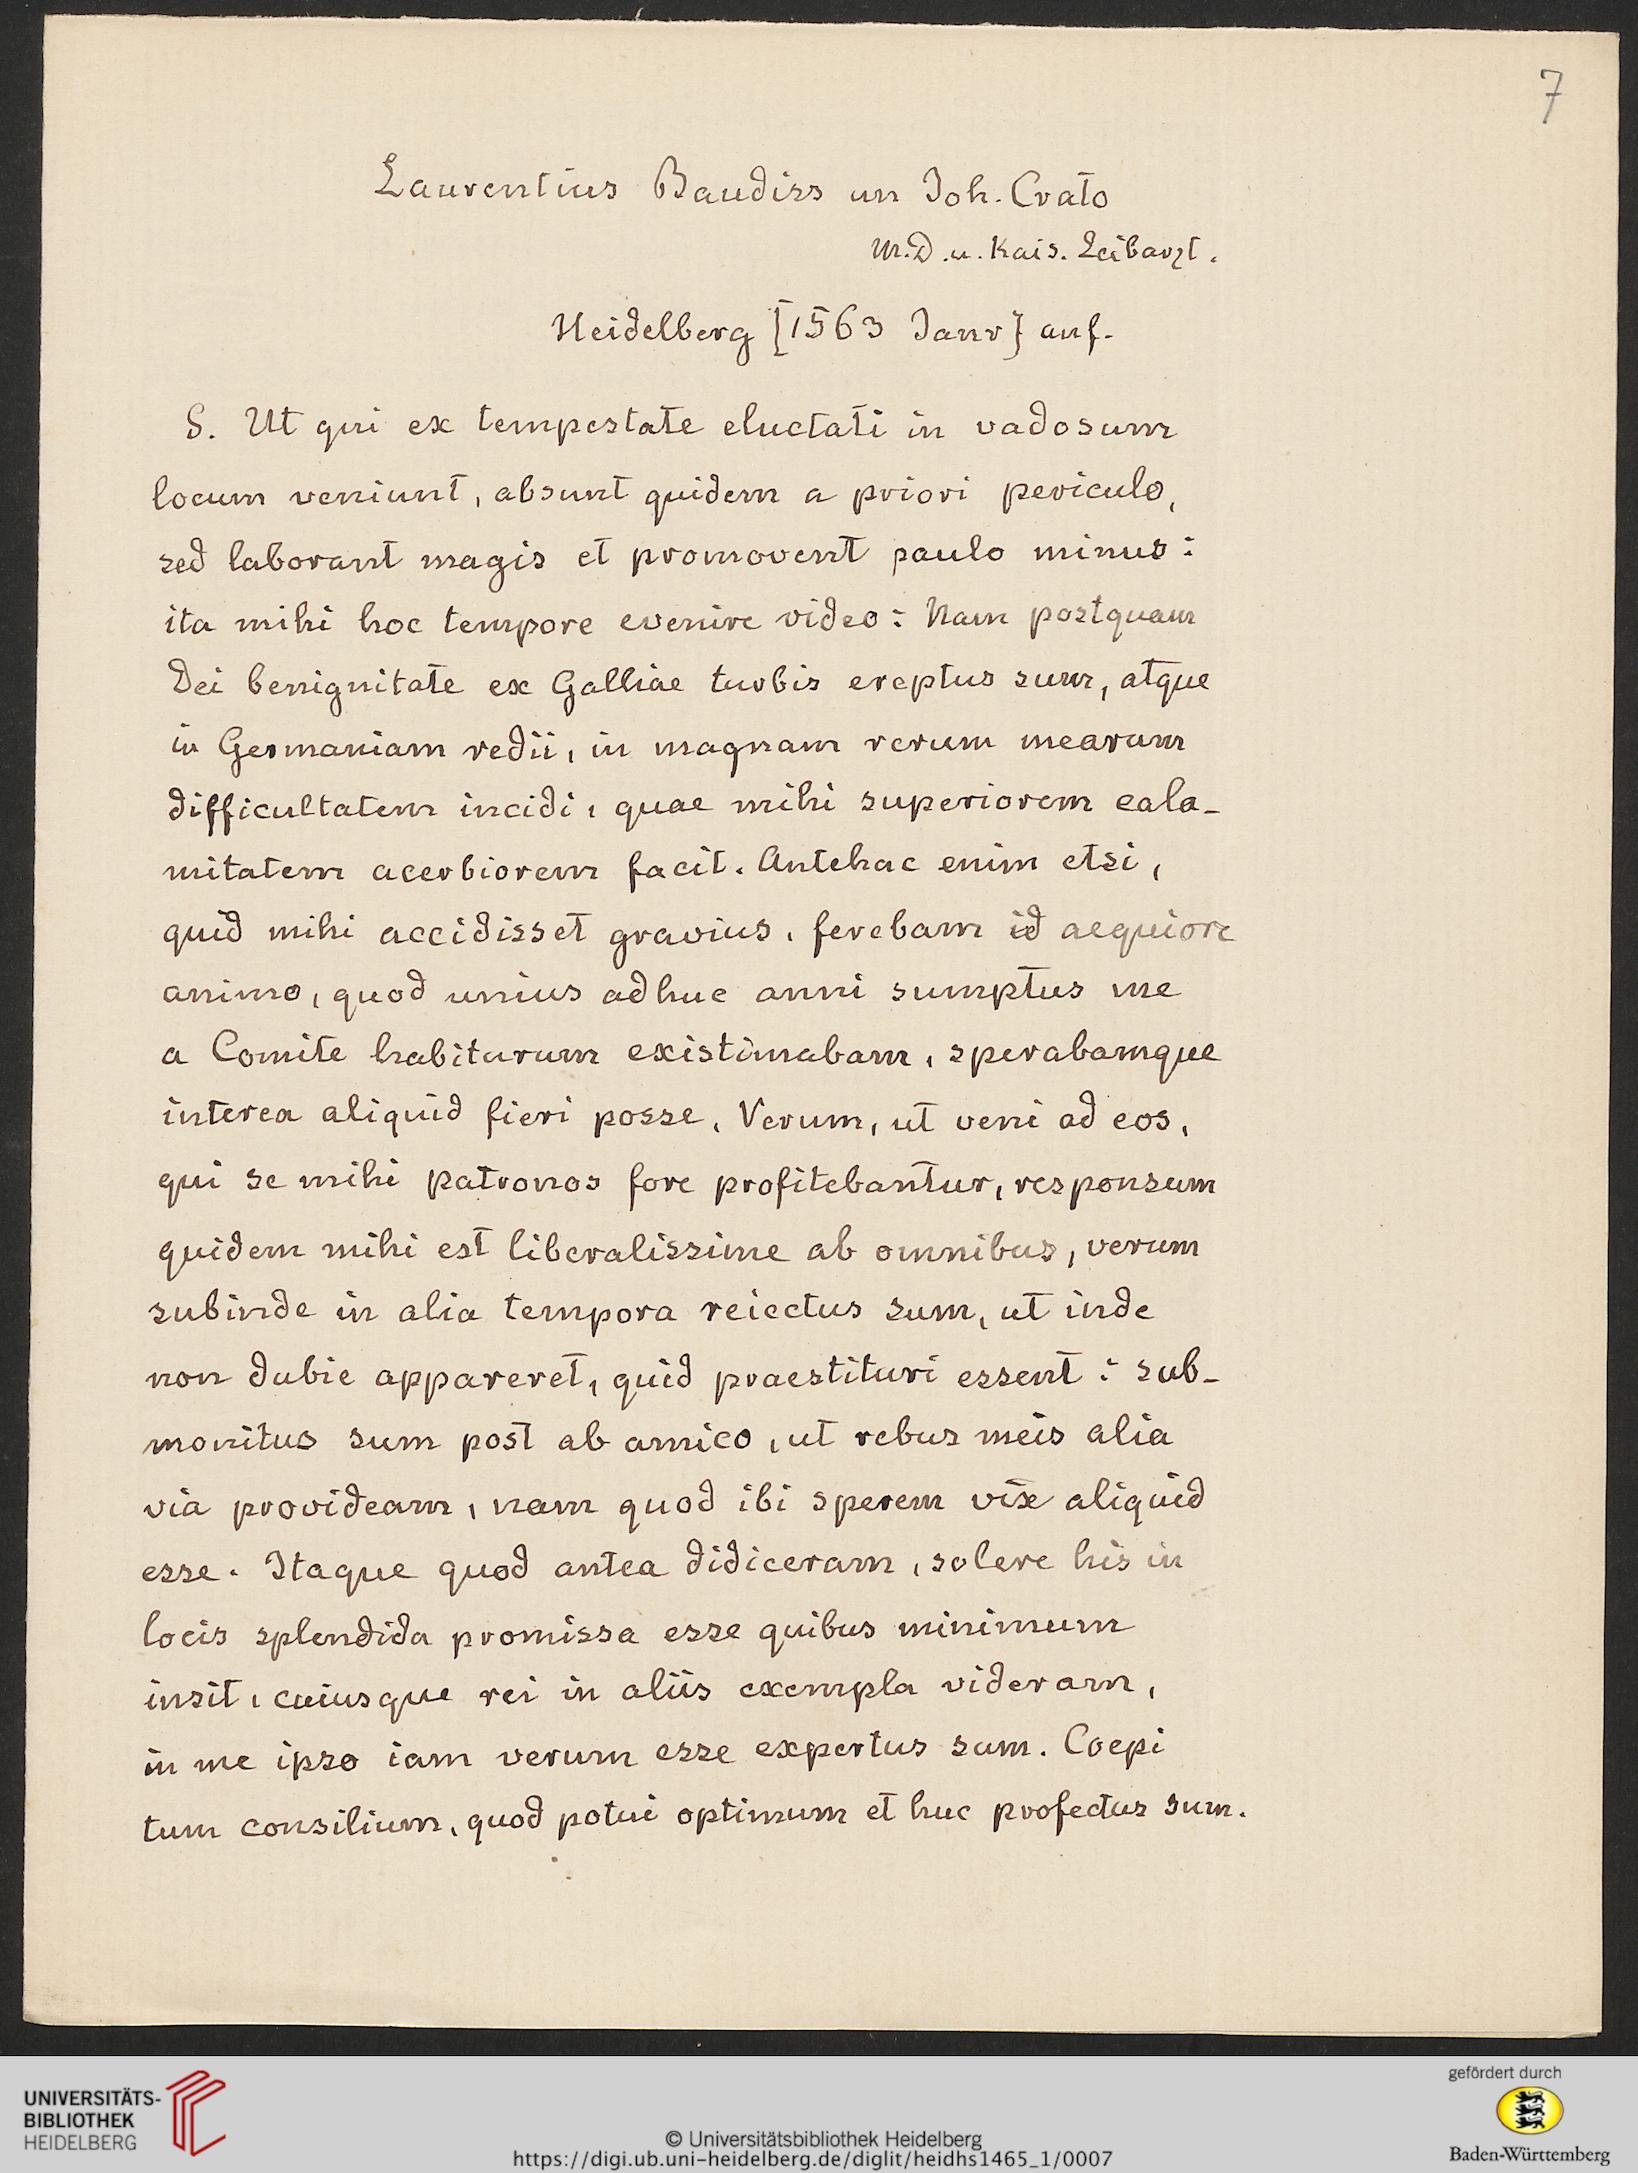 7
Laurentius Baudiss an Joh. Crato
M.D. u. Kais. Leibarzt.
Heidelberg [1563 Janr] anf.
S. Ut qui ex tempestate eluctati in vadosum
locum veniunt, absunt quidem a priori periculo,
sed laborant magis et promovent paulo minus:
ita mihi hoc tempore evenire video: Nam postquam
Dei benignitate ex Galliae turbis ereptus sum, atque
in Germaniam redii, in magnam rerum mearum
difficultatem incidi, quae mihi superiorem cala-
mitatem acerbiorem facit. Antehac enim etsi,
quid mihi accidisset gravius, ferebam id aequiore
animo, quod unius adhuc anni sumptus me
a Comite habiturum existimabam, sperabamque
interea aliquid fieri posse, Verum, ut veni ad eos,
qui se mihi patronos fore profitebantur, responsum
quidem mihi est liberalissime ab omnibus, verum
subinde in alia tempora reiectus sum, ut inde
non dubie appareret, quid praestituri essent: sub-
monitus sum post ab amico, ut rebus meis alia
via provideam, nam quod ibi sperem vix aliquid
esse. Itaque quod antea didiceram, solere his in
locis splendida promissa esse quibus minimum
insit, cuiusque rei in aliis exempla videram,
in me ipso iam verum esse expertus sum. Coepi
tum consilium, quod potui optimum et huc profectus sum.
UNIVERSITÄTS-
BIBLIOTHEK
HEIDELBERG
© Universitätsbibliothek Heidelberg
https://digi.ub.uni-heidelberg.de/diglit/heidhs1465_1/0007
gefördert durch
Baden-Württemberg